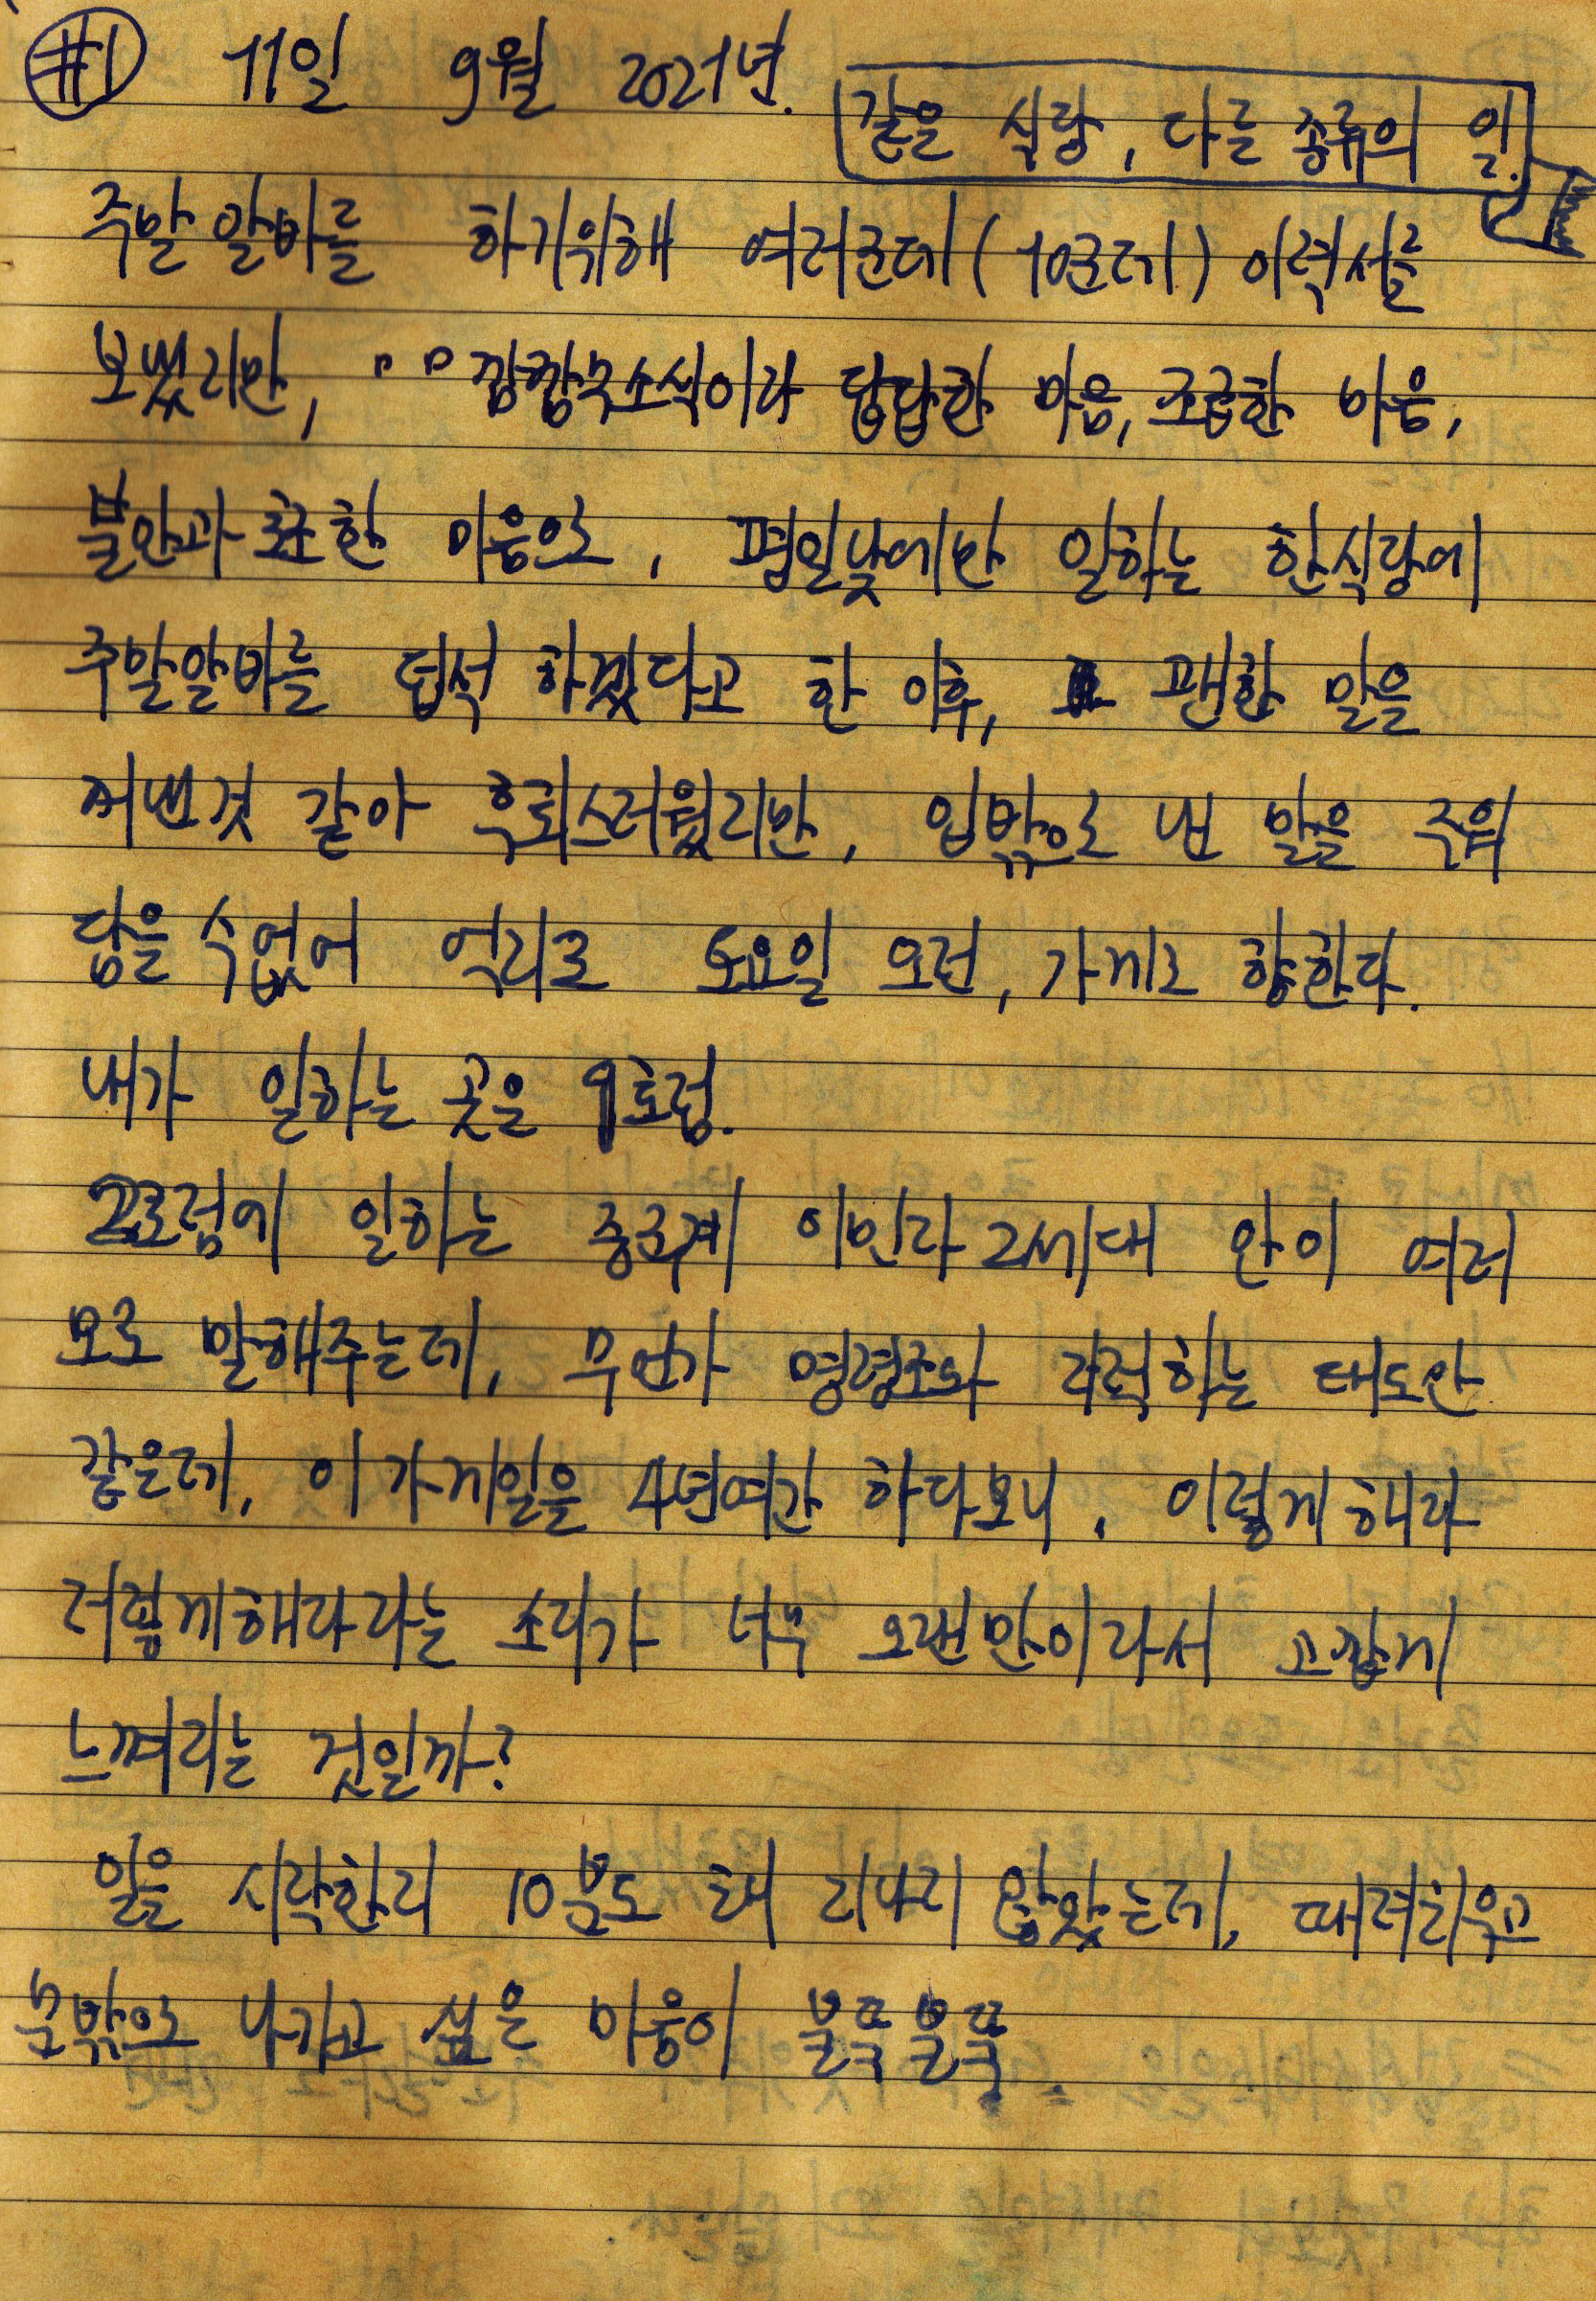 #1 11일 9월 2021년.
같은 식당, 다른 종류의 일.
주말 알바를 하기위해 여러군데(10군데) 이력서를
보냈지만, ㅁㅁ 깜깜무소식이라 답답한 마음, 조급한 마음,
불안과 초조한 마음으로, 평일낮에만 일하는 한식당에
주말알바를 덥석 하겠다고 한 이후, 괜한 말을
꺼낸것 같아 후회스러웠지만, 입밖으로 낸 말을 주워
담을 수없어 억지로 토요일 오전, 가게로 향한다.
내가 일하는 곳은 1호점.
2호점에 일하는 중국계 이민자 2세대 안이 여러
모로 말해주는데, 무언가 명령조와 지적하는 태도만
같은데, 이 가게일을 4년여간 하다보니, 이렇게해라
저렇게해라라는 소리가 너무 오랜만이라서 고깝게
느껴지는 것일까?
일을 시작한지 10분도 채 지나지 않았는데, 때려치우고
문밖으로 나가고 싶은 마음이 불쑥불쑥.